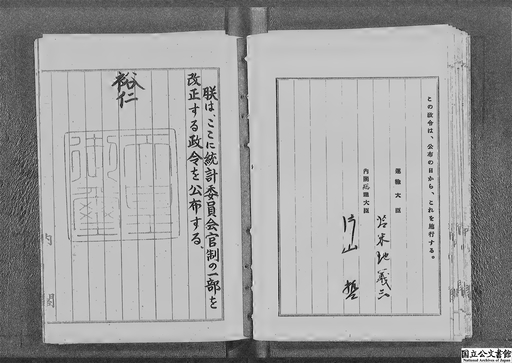 この政令は、公布の日から、これを施行する。
運輸大臣
苫米地義三
内閣総理大臣
片山哲
朕は、ここに統計委員会官制の一部を
改正する政令を公布する。
裕仁
天皇
御璽
内閣
国立公文書館
National Archives of Japan